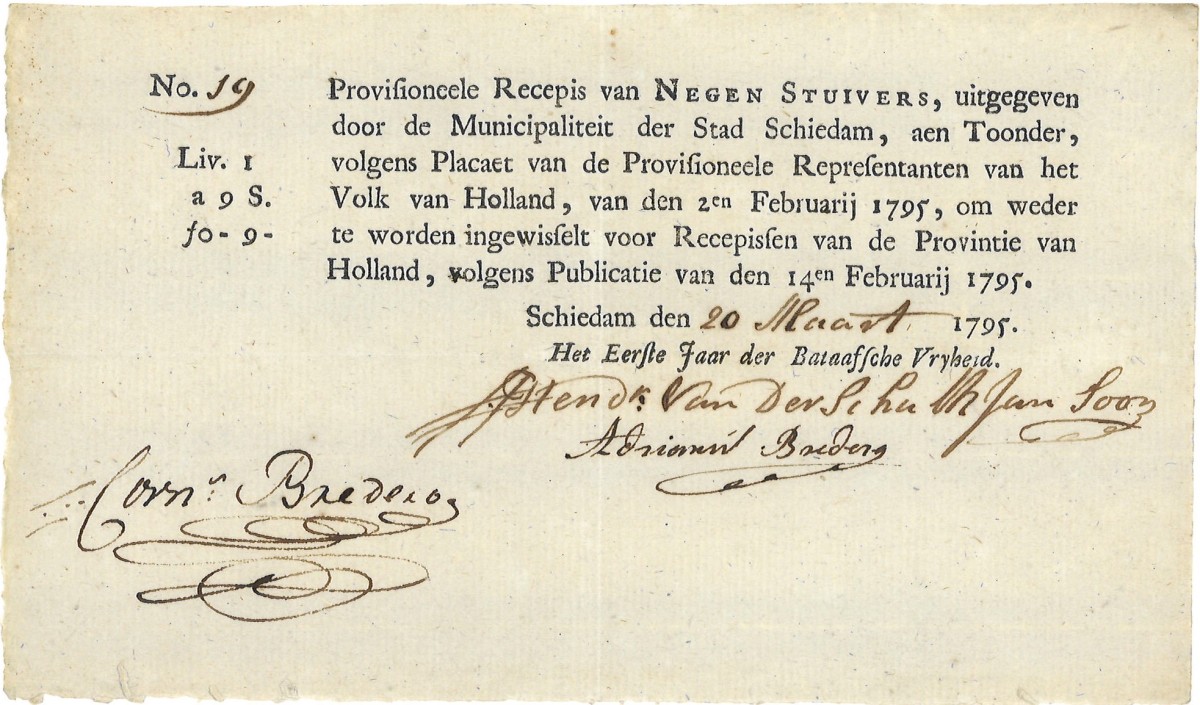 No. 19
Provisioneele Recepis van NEGEN STUIVERS, uitgegeven
door de Municipaliteit der Stad Schiedam, aen Toonder,
Liv. 1
volgens Placaet van de Provisioneele Representanten van het
a 9 S.
Volk van Holland, van den 2en Februarij 1795, om weder
fo- 9-
te worden ingewisselt voor Recepissen van de Provintie van
Holland, volgens Publicatie van den 14en Februarij 1795.
Schiedam den 20 Maart 1795.
Het Eerste Jaar der Bataafsche Vryheid.
Hendk. Van Der Schalk Jan Soon
Adrianus Bredero
Corns. Bredero